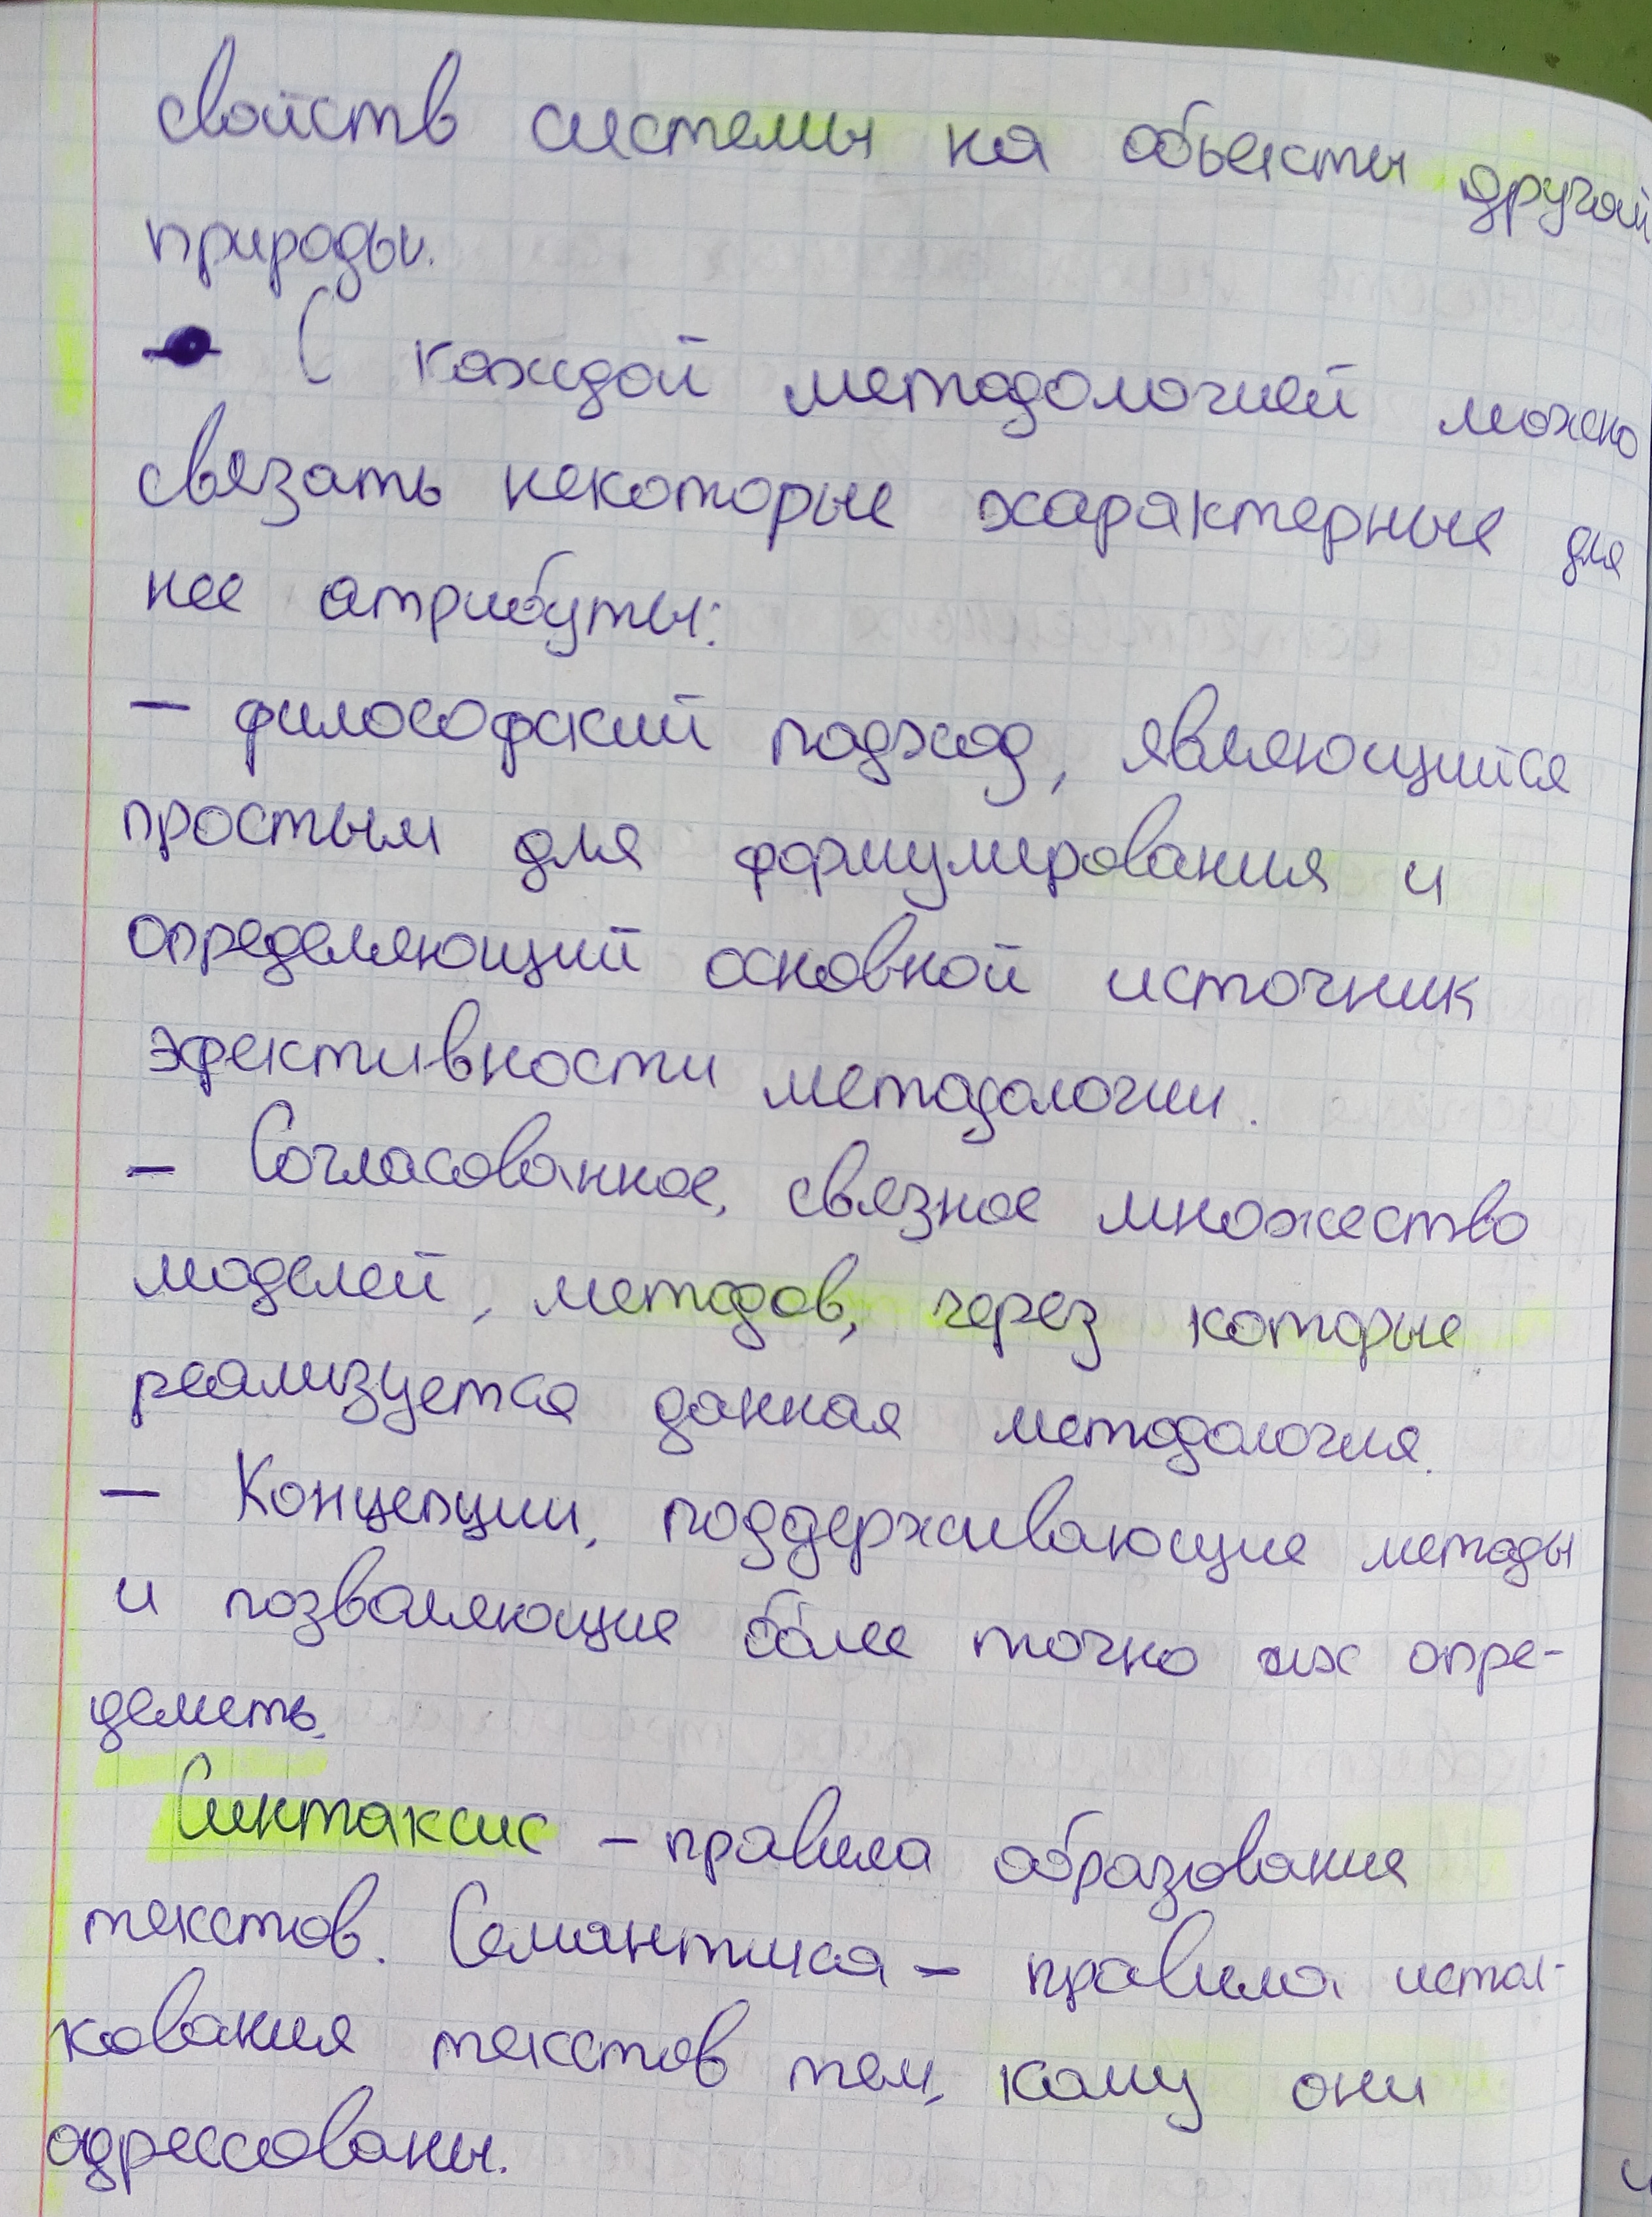 свойств системы на обьекты другой
природы.
С каждой методологией можно
связать некоторые характерные для
нее атрибуты:
— философский подход, являющийся
простым для формулирования и
определяющий основной источник
эфективности методологии.
— Согласованное, связное множество
моделей, методов, через которые
реализуется данная методология.
— Концепции, поддерживающие методы
и позваляющие более точно их опре-
делить.
Синтаксис — правила образования
текстов. Семантика — правила истол-
кования текстов тем, кому они
адрессованы.